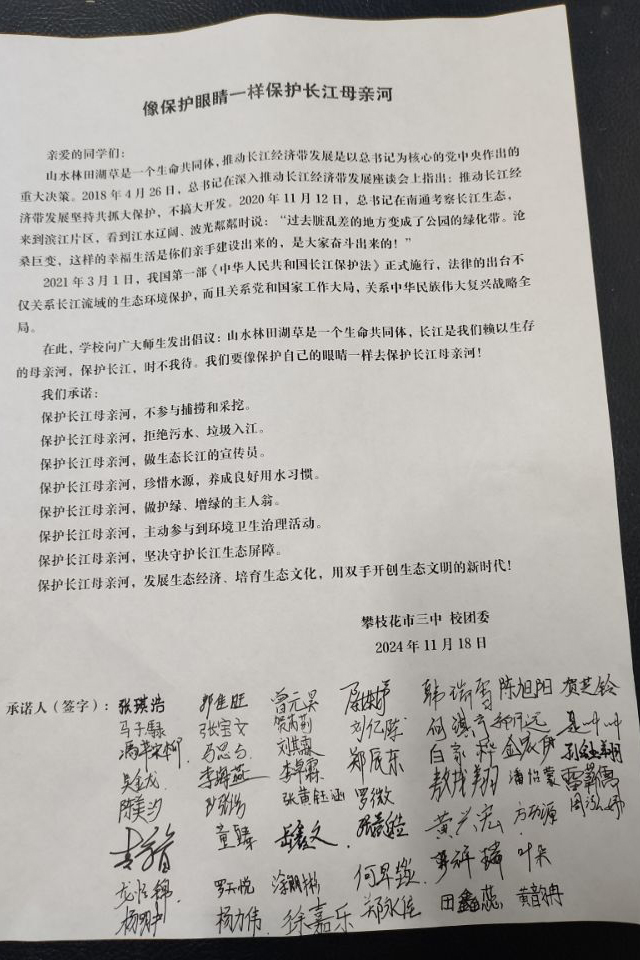 像保护眼睛一样保护长江母亲河
亲爱的同学们：
山水林田湖草是一个生命共同体，推动长江经济带发展是以总书记为核心的党中央作出的
重大决策。2018 年 4 月 26 日，总书记在深入推动长江经济带发展座谈会上指出：推动长江经
济带发展坚持共抓大保护，不搞大开发。2020 年 11 月 12 日，总书记在南通考察长江生态，
来到滨江片区，看到江水辽阔、波光粼粼时说：“过去脏乱差的地方变成了公园的绿化带。沧
桑巨变，这样的幸福生活是你们亲手建设出来的，是大家奋斗出来的！”
2021 年 3 月 1 日，我国第一部《中华人民共和国长江保护法》正式施行，法律的出台不
仅关系长江流域的生态环境保护，而且关系党和国家工作大局，关系中华民族伟大复兴战略全
局。
在此，学校向广大师生发出倡议：山水林田湖草是一个生命共同体，长江是我们赖以生存
的母亲河，保护长江，时不我待。我们要像保护自己的眼睛一样去保护长江母亲河！
我们承诺：
保护长江母亲河，不参与捕捞和采挖。
保护长江母亲河，拒绝污水、垃圾入江。
保护长江母亲河，做生态长江的宣传员。
保护长江母亲河，珍惜水源，养成良好用水习惯。
保护长江母亲河，做护绿、增绿的主人翁。
保护长江母亲河，主动参与到环境卫生治理活动。
保护长江母亲河，坚决守护长江生态屏障。
保护长江母亲河，发展生态经济、培育生态文化，用双手开创生态文明的新时代！
攀枝花市三中 校团委
2024 年 11 月 18 日
承诺人（签字）：张琪浩 郭佳旺 曾元昊 陈旭阳 贺芝铃
马子騄 张宝文 贺芮莉 刘亿陈 是叶叶
马思占 刘淇霖 郑辰东 白家烨
吴金龙 李海燕 李卓霖 敖找翔 潘怡蒙
陈美汐 张黄钰涵 罗微 黄兴宏
童臻 叶朵
罗天悦 何早强
杨力伟 徐嘉乐 郑永佳 田鑫蕊 黄韵冉